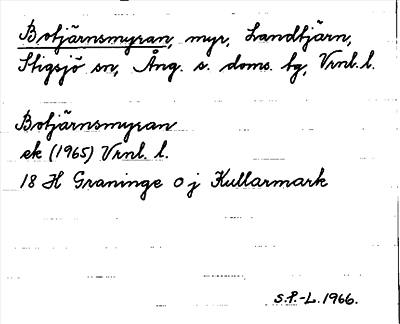 Botjärnsmyran, myr, Landtjärn,
Stigsjö sn, Ång. s. doms. tg, Vrnl. l.
Botjärnsmyran
ek (1965) Vrnl. l.
18 H Graninge o j Kullarmark
S.P.-L. 1966.